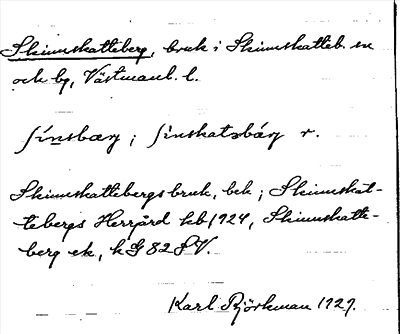 Skinnskatteberg, bruk i Skinnskatteb. sn
och by, Västmanl. l.
ʃìnsbærj ; ʃìnskatəbárj r.
Skinnskattebergs bruk, bek ; Skinnskat-
tebergs Herrgård kb 1924, Skinnskatte-
berg ek, kG 82 SV.
Karl Björkman 1929.